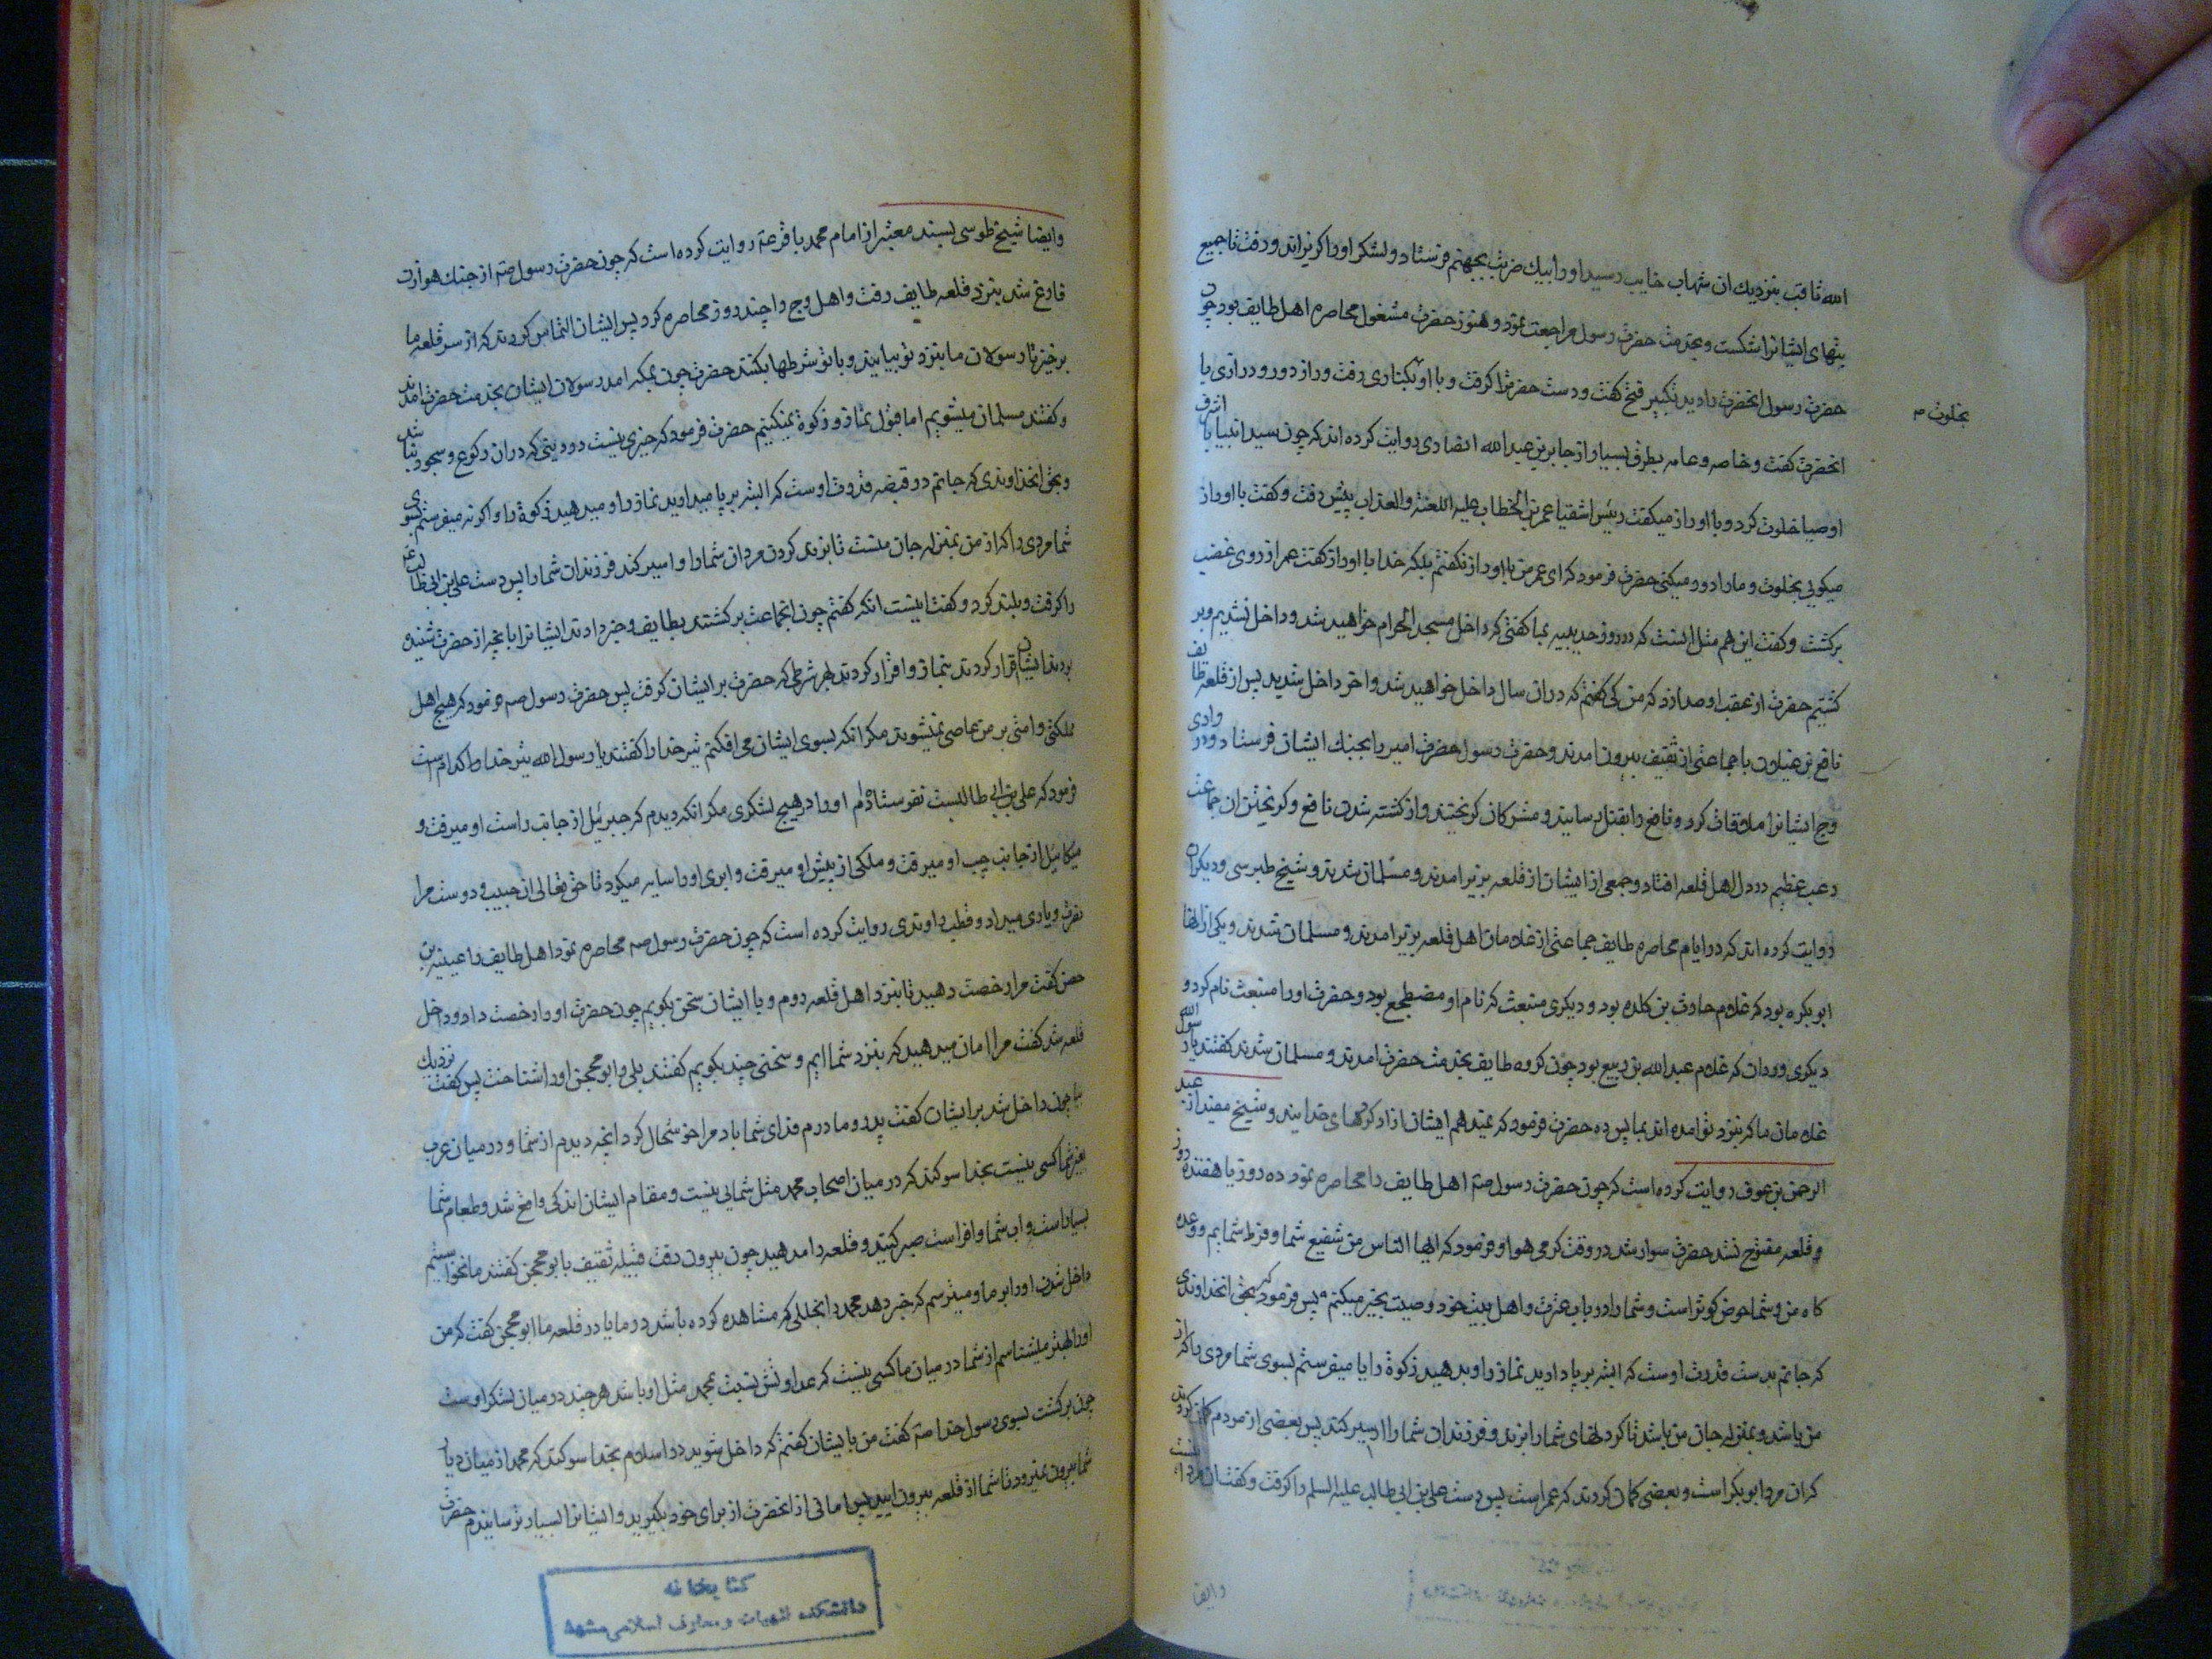 الله ثاقب بنزدیك ان شهاب خایب رسید اورا بیك ضربت بجهنم فرستاد و لشکر اورا کریزاند و رفت تا جمیع
بتهای ایشانرا شکست و بخدمت حضرت رسول مراجعت نمود و هنوز حضرت مشغول محاصره اهل طایف بود چون
حضرت رسول انحضرت را دید تکبیر فتح کفت و دست حضرترا کرفت و با او بکناری رفت و راز دور و درازی با
بخلوت م
انحضرت کفت و خاصه و عامه بطرق بسیار از جابر بن عبد الله انصاری روایت کرده اند که چون سید انبیا با اشرف
اوصیا خلوت کرد و با او راز میکفت رئیس اشقیا عمر بن الخطاب علیه اللعنه والعذاب پیش رفت و کفت با او راز
میکویی بخلوت و مارا دور میکنی حضرت فرمود که ای عمر من با او راز نکفتم بلکه خدا با او راز کفت عمر از روی غضب
برکشت و کفت این هم مثل انست که در روز حدیبیه بما کفتی که داخل مسجد الحرام خواهید شد و داخل نشدیم و بر
کشتیم حضرت از عقب او صدا زد که من کی کفتم که دران سال داخل خواهید شد و اخر داخل شدید پس از قلعه طایف
نافع بن غیلان با جماعتی از ثقیف بیرون امدند و حضرت رسول حضرت امیر را بجنك ایشان فرستاد و در وادی
وج ایشانرا ملاقات کرد و نافع را بقتل رسانید و مشرکان کریختند و از کشته شدن نافع و کریختن ان جماعت
رعب عظیم در دل اهل قلعه افتاد و جمعی از ایشان از قلعه بزیر امدند و مسلمان شدند و شیخ طبرسی و دیکران
روایت کرده اند که در ایام محاصره طایف جماعتی از غلامان اهل قلعه بزیر امدند و مسلمان شدند و یکی از انها
ابو بکره بود که غلام حارث بن کلده بود و دیکری منبعث که نام او مضطجع بود و حضرت اورا منبعث نام کرد و
دیکری وردان که غلام عبد الله بن ربیع بود چون کروه طایف بخدمت حضرت امدند و مسلمان شدند کفتند یا رسول الله
غلامان ما که بنزد تو امده اند بما پس ده حضرت فرمود که نمیدهم ایشان ازاد کردهای خدایند و شیخ مفید از عبد
الرحمن بن عوف روایت کرده است که چون حضرت رسول صم اهل طایف را محاصره نمود ده روز یا هفده روز
و قلعه مفتوح نشد حضرت سوار شد در وقت کرمی هوا و فرمود که ایها الناس من شفیع شما و فرط شمایم و وعده
کاه من و شما حوض کوثر است و شمارا در باب عترت و اهل بیت خود وصیت بخیر میکنم پس فرمود که بحق انخداوندی
که جانم بدست قدرت اوست که البته برپا دارید نماز را و بدهید زکوة را یا میفرستم بسوی شما مردی را که از
من باشد و بمنزله جان من باشد تا کردنهای شمارا بزند و فرزندان شمارا اسیر کند پس بعضی از مردم کمان کردند
که ان مرد ابو بکر است و بعضی کمان کردند که عمر است پس دست علی بن ابی طالب علیه السلم را کرفت و کفت ان مرد اینست
وایضا
وایضا شیخ طوسی بسند معتبر از امام محمد باقر عم روایت کرده است که چون حضرت رسول صم از جنك هوازن
فارغ شد بنزد قلعه طایف رفت و اهل وج را چند روز محاصره کرد پس ایشان التماس کردند که از سر قلعه ما
برخیز تا رسولان ما بنزد تو بیایند و با تو شرطها بکنند حضرت چون بمکه امد رسولان ایشان بخدمت حضرت امدند
و کفتند مسلمان میشویم اما قبول نماز و زکوة نمیکنیم حضرت فرمود که خیری نیست در دینی که دران رکوع و سجود نباشد
و بحق انخداوندی که جانم در قبضه قدرت اوست که البته برپا میدارید نماز را و میدهید زکوة را و اکرنه میفرستم بسوی
شما مردی را که از من بمنزله جان منست تا بزند کردن مردان شمارا و اسیر کند فرزندان شمارا پس دست علی بن ابی طالب عم
را کرفت و بلند کرد و کفت اینست انکه کفتم چون انجماعت برکشتند بطایف و خبر دادند ایشانرا بانچه از حضرت شنیده
بودند ایشان اقرار کردند بنماز و اقرار کردند بهر شرطی که حضرت بر ایشان کرفت پس حضرت رسول صم فرمود که هیچ اهل
مملکتی و امتی بر من عاصی نمیشوند مکر انکه بسوی ایشان می افکنم تیر خدا را کفتند یا رسول الله تیر خدا کدام است
فرمود که علی بن ابی طالبست نفرستاده‌ام اورا در هیچ لشکری مکر انکه دیدم که جبرئیل از جانب راست او میرفت و
میکائیل از جانب چپ او میرفت و ملکی از پیش او میرفت و ابری اورا سایه میکرد تا حق تعالی ان حبیب و دوست مرا
نصرت و یاری میداد و قطب راوندی روایت کرده است که چون حضرت رسول صم محاصره نمود اهل طایف را عیینه بن
حصن کفت مرا رخصت دهید تا بنزد اهل قلعه روم و با ایشان سخن بکویم چون حضرت اورا رخصت داد و داخل
قلعه شد کفت مرا امان میدهید که بنزد شما ایم و سخنی چند بکویم کفتند بلی و ابو محجن اورا شناخت پس کفت نزدیك
بیا چون داخل شد بر ایشان کفت پدر و مادرم فدای شما باد مرا خوشحال کرد انچه دیدم از شما و در میان عرب
بغیر شما کسی نیست بخدا سوکند که در میان اصحاب محمد مثل شمایی نیست و مقام ایشان اندکی واقع شد و طعام شما
بسیار است و اب شما وافر است صبر کنید و قلعه را مدهید چون بیرون رفت قبیله ثقیف بابو محجن کفتند ما نخواستیم
داخل شدن اورا بر ما و میترسم که خبر دهد محمد را بخللی که مشاهده کرده باشد در ما یا در قلعه ما ابو محجن کفت که من
اورا بهتر میشناسم از شما در میان ما کسی نیست که عداوتش نسبت بمحمد مثل او باشد هر چند در میان لشکر اوست
چون برکشت بسوی رسول خدا صم کفت من بایشان کفتم که داخل شوید در اسلام بخدا سوکند که محمد از میان دیار
شما بیرون نمیرود تا شما از قلعه بیرون ایید پس امانی از انحضرت از برای خود بکیرید و ایشانرا بسیار ترسانیدم حضرت
کتابخانه
دانشکده الهیات و معارف اسلامی مشهد